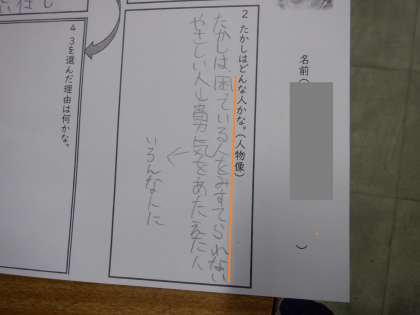 名前（　　　）
2 たかしはどんな人かな。（人物像）
たかしは困っている人をみすてられない
やさしい人 勇気をあたえた人
いろんな人に
4 3を選んだ理由は何かな。